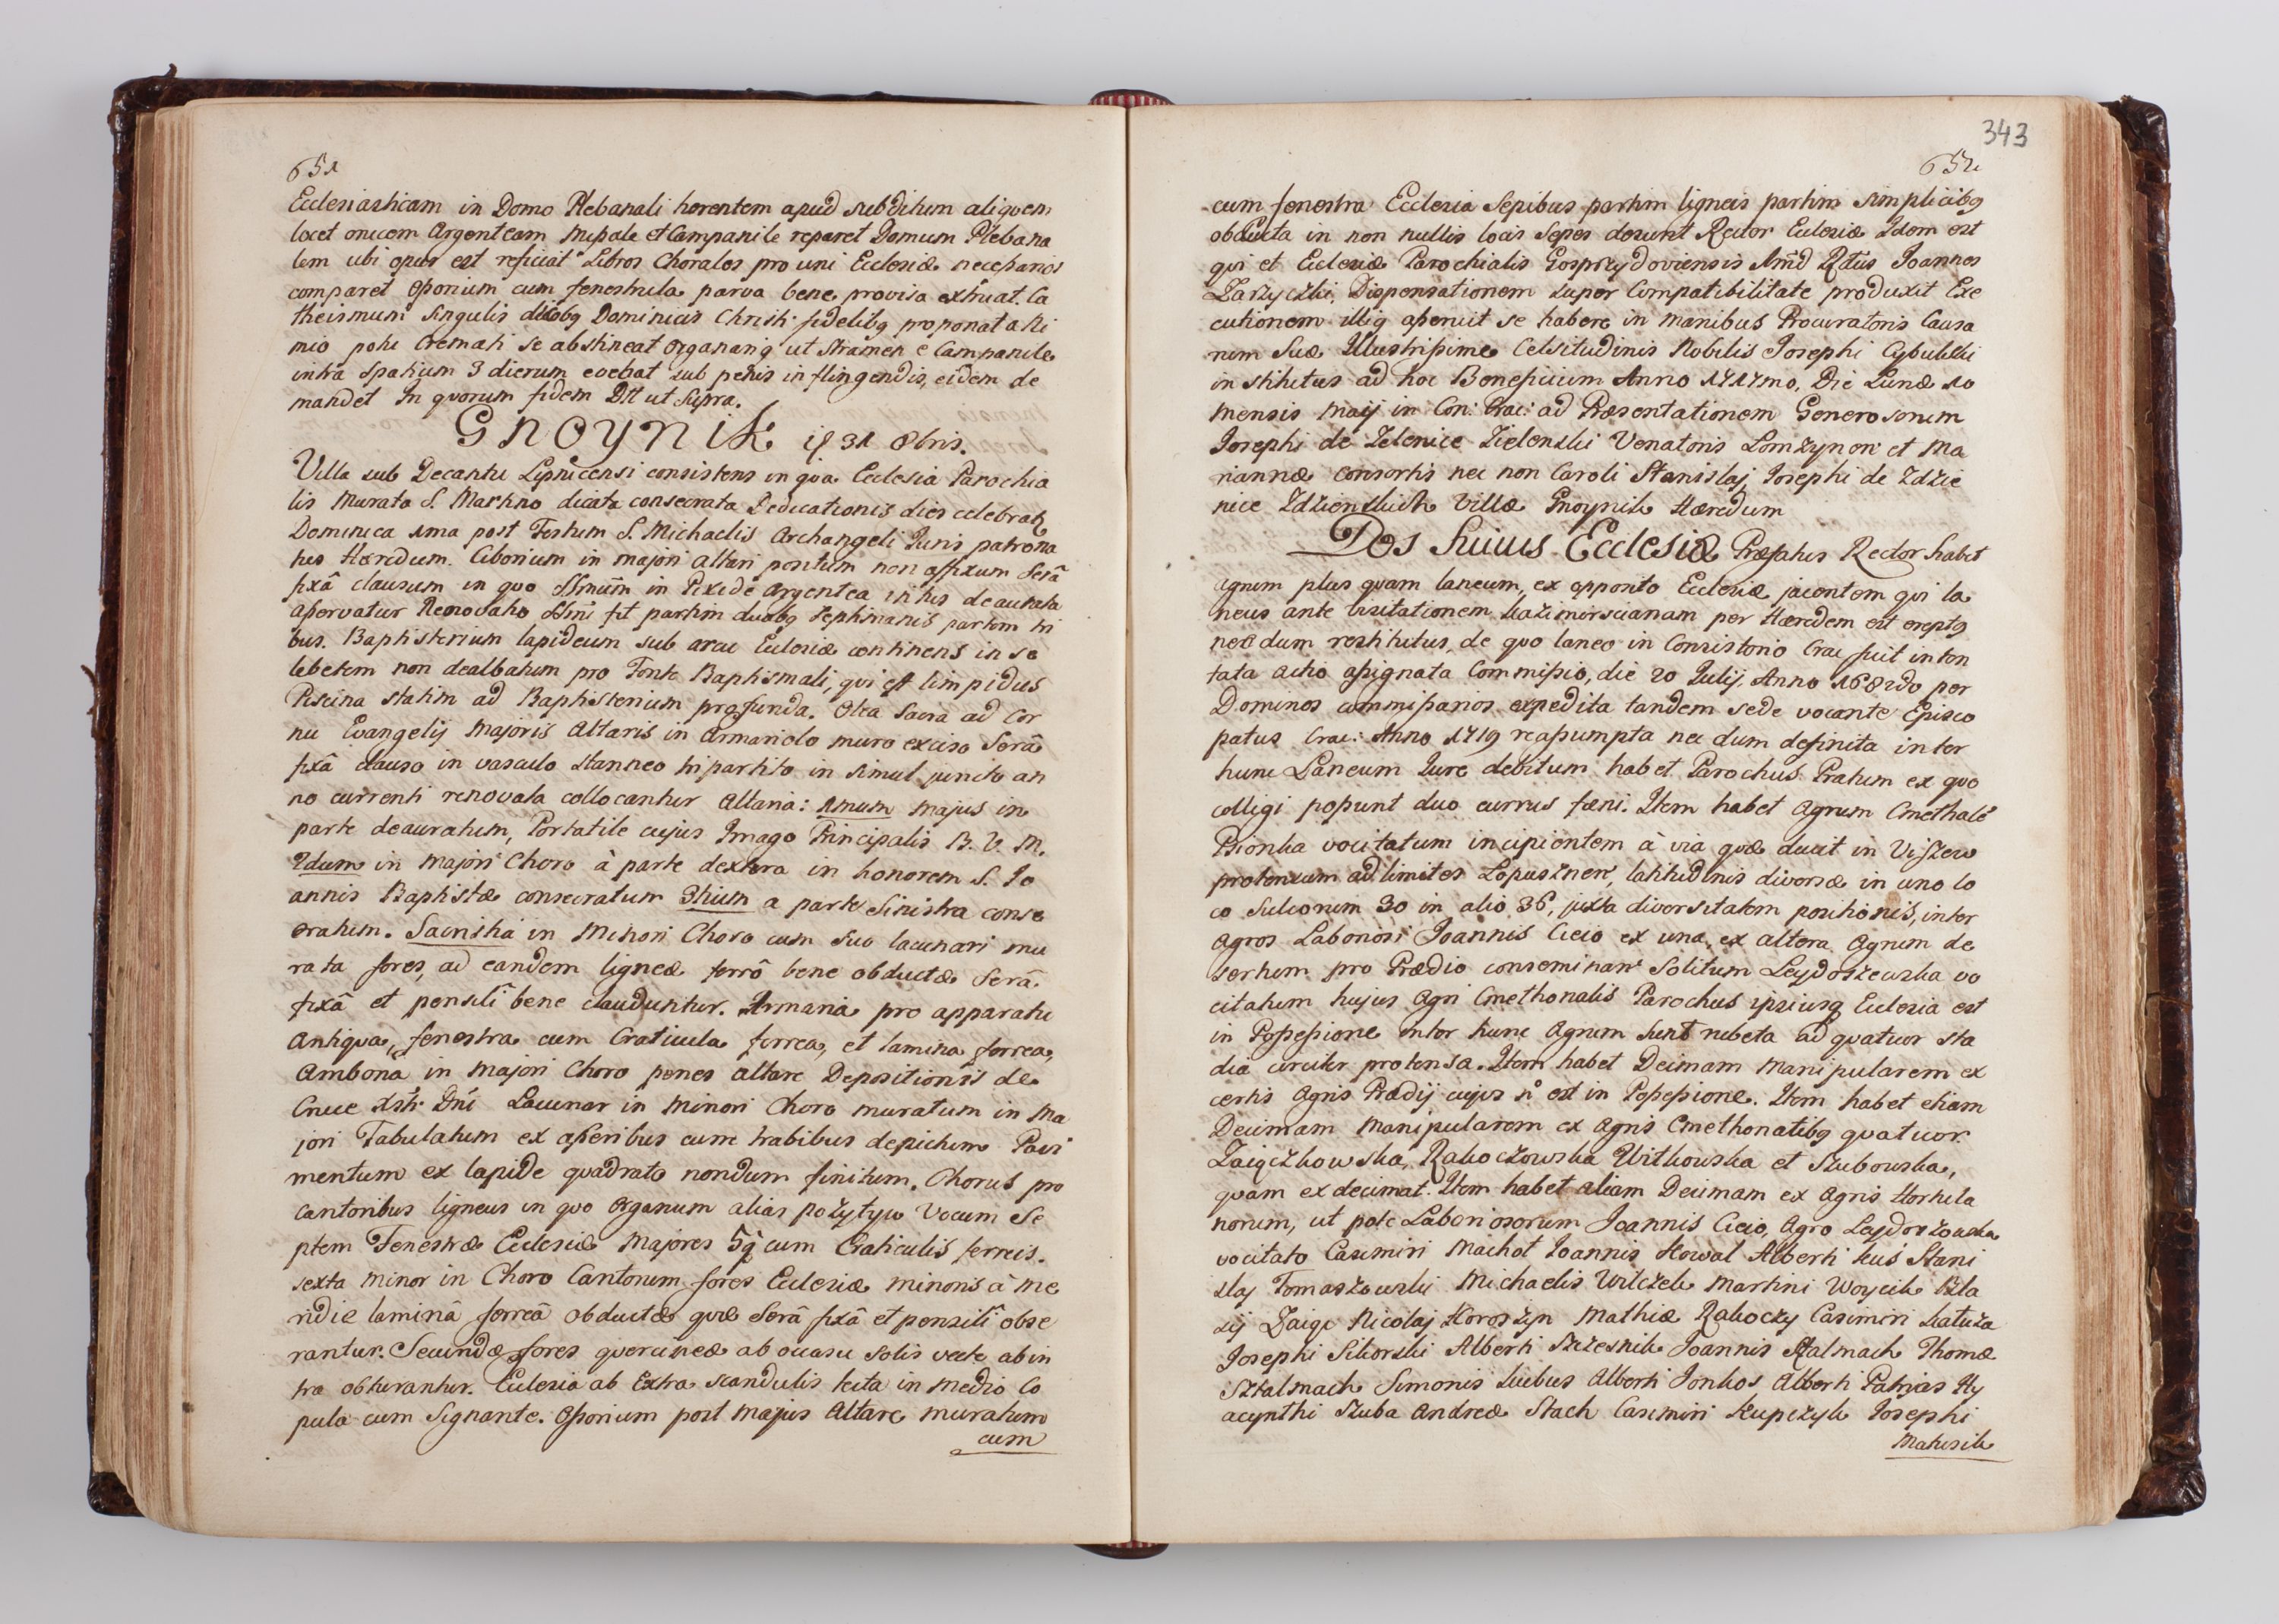 651
Ecclesiasticam in Domo Plebanali herentem apud subditum aliquem
locet onicem Argenteam Missale et Campanile reparet Domum Plebana
lem ubi opus est reficiat Libros Chorales pro uni Ecclesiæ necessarios
comparet Ossorium cum fenestrula parva bene provisa extruat. Ca
theismum singulis diebq Dominicis Christi fidelibq proponat a Ni
mio potu Cremati se abstineat Organariq ut stramen e Campanile
intra spatium 3 dierum evehat sub penis in flingendis, eidem de
mandet In quorum fidem Dtt ut supra.
GNOYNIK if 31 8bris.
Villa sub Decantu Lipnicensi consistens in qva Ecclesia Parochia
lis Murata S. Martino dicata consecrata Dedicationis dies celebratr
Dominica 1ma post Festum S. Michaelis Archangeli Juris patrona
tus Hæredum. Ciborium in majori altari positum non affixum Serâ
fixâ clausum in quo SSmum in Pixide Argentea intus deaurata
asservatur Renovatio SSmi fit partim duabq septimanis partim tri
bus. Baptisterium lapideum sub arcu Ecclesiæ continens in se
lebetem non dealbatum pro Fonte Baptismali, qui est limpidus
Piscina statim ad Baptisterium profunda. Olea Sacra ad Cor
nu Evangelij Majoris Altaris in Armariolo muro exciso Serâ
fixâ clauso in vasculo stanneo tripartito in simul juncto an
no currenti renovata collocantur Altaria: 1mum majus in
parte deauratum, Portatile cujus Imago Principalis B. V. M.
2dum in majori Choro à parte dextera in honorem S. Jo
annis Baptistæ consecratum 3tium a parte Sinistra conse
cratum. Sacristia in Minori Choro cum suo lacunari mu
rata fores, ad eandem ligneæ ferrô bene obductæ Serâ
fixâ et pensili bene clauduntur. Armaria pro apparatu
antiqua, fenestra cum Craticula ferrea, et lamina ferrea,
Ambona in Majori Choro penes altare Depositionis de
Cruce Xsti Dni Lacunar in Minori Choro muratum in Ma
jori Tabulatum ex asseribus cum trabibus depictum Pavi
mentum ex lapide quadrato nondum finitum. Chorus pro
cantoribus ligneus in quo Organum alias pozytyw Vocum Se
ptem Fenestræ Ecclesiæ Majores 5q cum Craticulis ferreis.
sexta minor in Choro Cantorum fores Ecclesiæ minoris à me
ridie laminâ ferreâ obductæ quæ Serâ fixâ et pensili obse
rantur. Secundæ fores querceneæ ab occasu solis vecte abin
tra obturantur. Ecclesia ab Extra scandulis tecta in medio Co
pula cum Signante. Ossorium post Majus Altare muratum
cum
343
652
cum fenestra Ecclesia Sepibus partim ligneis partim simplicibq
obducta in non nullis locis Sepes desunt Rector Ecclesiæ Idem est
qui et Ecclesiæ Parochialis Gosprzydoviensis Amd Rdus Joannes
Zarzyczki, Dispensationem super Compatibilitate produxit Exe
cutionem illiq asseruit se habere in manibus Procuratoris Causa
rum Suæ Illustrissimæ Celsitudinis Nobilis Josephi Cybulski
institutus ad hoc Beneficium Anno 1717mo, Die Lunæ 10
mensis Maij in Con: Crac: ad Præsentationem Generosorum
Josephi de Zelenice Zielenski Venatoris Lomzynen et Ma
riannæ consortis nec non Caroli Stanislaj Josephi de Zdzie
nice Zdzienskich Villæ Gnoynik Hæredum
Dos huius Ecclesiæ Præfatus Rector habet
agrum plus quam laneum, ex opposito Ecclesiæ jacentem qui la
neus ante visitationem Kazimirscianam per Hæredem est ereptq
nec dum restitutus, de quo laneo in Consistorio Crac fuit inten
tata Actio assignata Commissio, die 20 Julij, Anno 1682do per
Dominos commissarios expedita tandem sede vacante Episco
patus Crac: Anno 1719 reassumpta nec dum definita inter
hunc Laneum Jure debitum habet Parochus Pratum ex quo
colligi possunt duo currus fæni. Item habet Agrum Cmethale
Psionka vocitatum incipientem à via quæ ducit in Viszew
protensum ad limites Lopusznen, latitudinis diversæ in uno lo
co sulcorum 30 in alio 36, juxta diversitatem positionis, inter
Agros Laboriosi Joannis Cicio ex una, ex altera Agrum de
sertum pro Prædio conseminari solitum Leydoszewska vo
citatum hujus Agri Cmethonalis Parochus ipsiusq Ecclesia est
in Possessione inter hunc Agrum sunt rubeta ad quatuor sta
dia circiter protensa. Item habet Decimam Manipularem ex
certis Agris Prædij cujus n° est in Possessione. Item habet etiam
Decimam Manipularem ex Agris Cmethonalibq quatuor.
Zaiączkowska, Rakoczowska Witkowska et Szubowska,
quam ex decimat. Item habet aliam Decimam ex Agris Hortula
norum, ut pote Laboriosorum Joannis Cicio, Agro Leydoszowska
vocitato Casimiri Machot Joannis Kowal Alberti Kus Stani
slaj Tomaszewski Michaelis Wilczek Martini Woycik Bla
sij Zaiąc Nicolaj Horoszyn Mathiæ Rakoczy Casimiri Katuza
Josephi Sikorski Alberti Szczesnik Joannis Stalmach Thomæ
Sztalmach Simonis Kuebus Alberti Jonkos Alberti Patryas Hy
acynthi Szuba Andreæ Stach Casimiri Kupczyk Josephi
Matusik